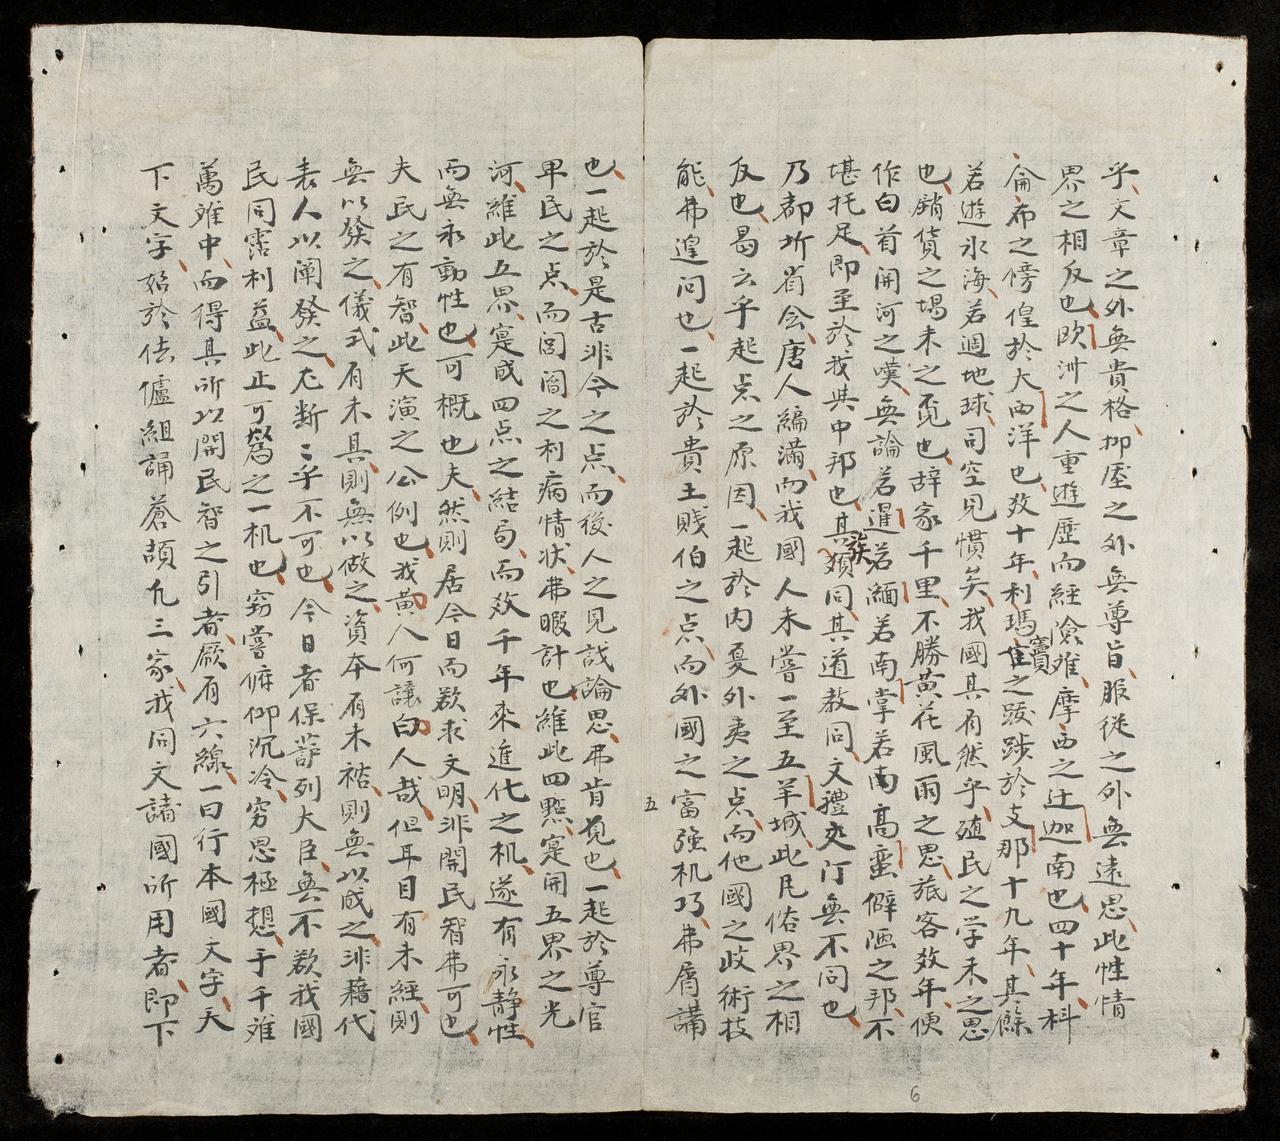 乎文章之外無貴格抑屋之外無尊旨服從之外無遠思此性情
界之相反也欧洲之人重遊歷而經險难摩西之迁迦南也四十年科
侖布之傍偟於大西洋也数十年利瑪竇之跋踄於支那十九年其餘
若遊氷海若週地球司空見慣矣我國其有然乎殖民之学未之思
也銷貨之場未之覓也辞家千里不勝黄花風雨之思羇客数年便
作白首開河之嘆無論若暹若緬若南掌若南高蛮僻陋之邦不
堪托足即至於我與中邦也其族類同其道教同文禮文汀無不同也
乃都圻省会唐人編满而我國人未嘗一至五羊城此凡俗界之相
反也曷云乎起点之原因一起於内夏外夷之点而他國之歧術技
能弗遑问也一起於貴王賎伯之点而外國之富强机巧弗屑講
五
也一起於是古非今之点而後人之見識論思弗肯覓也一起於尊官
早民之点而閭閻之利病情状弗暇計也維此四點寔開五界之光
河維此五界寔成四点之結局而数千年來進化之机遂有永静性
而無永動性也可概也夫然則居今日而欲求文明非開民智弗可也
夫民之有智此天演之公例也我黄人何讓白人哉但耳目有未經則
無以發之儀式有未具則無以做之資本有未祜則無以成之非藉代
表人以阐發之尤断〻乎不可也今日者保護列大臣無不欲我國
民同霑利益此止可驚之一机也窃嘗俯仰沉冷穷思極想于千难
萬难中而得其所以開民智之引者厥有六線一曰行本國文字天
下文字始於佉儢組誦蒼頡凢三家我同文諸國所用者即下
6